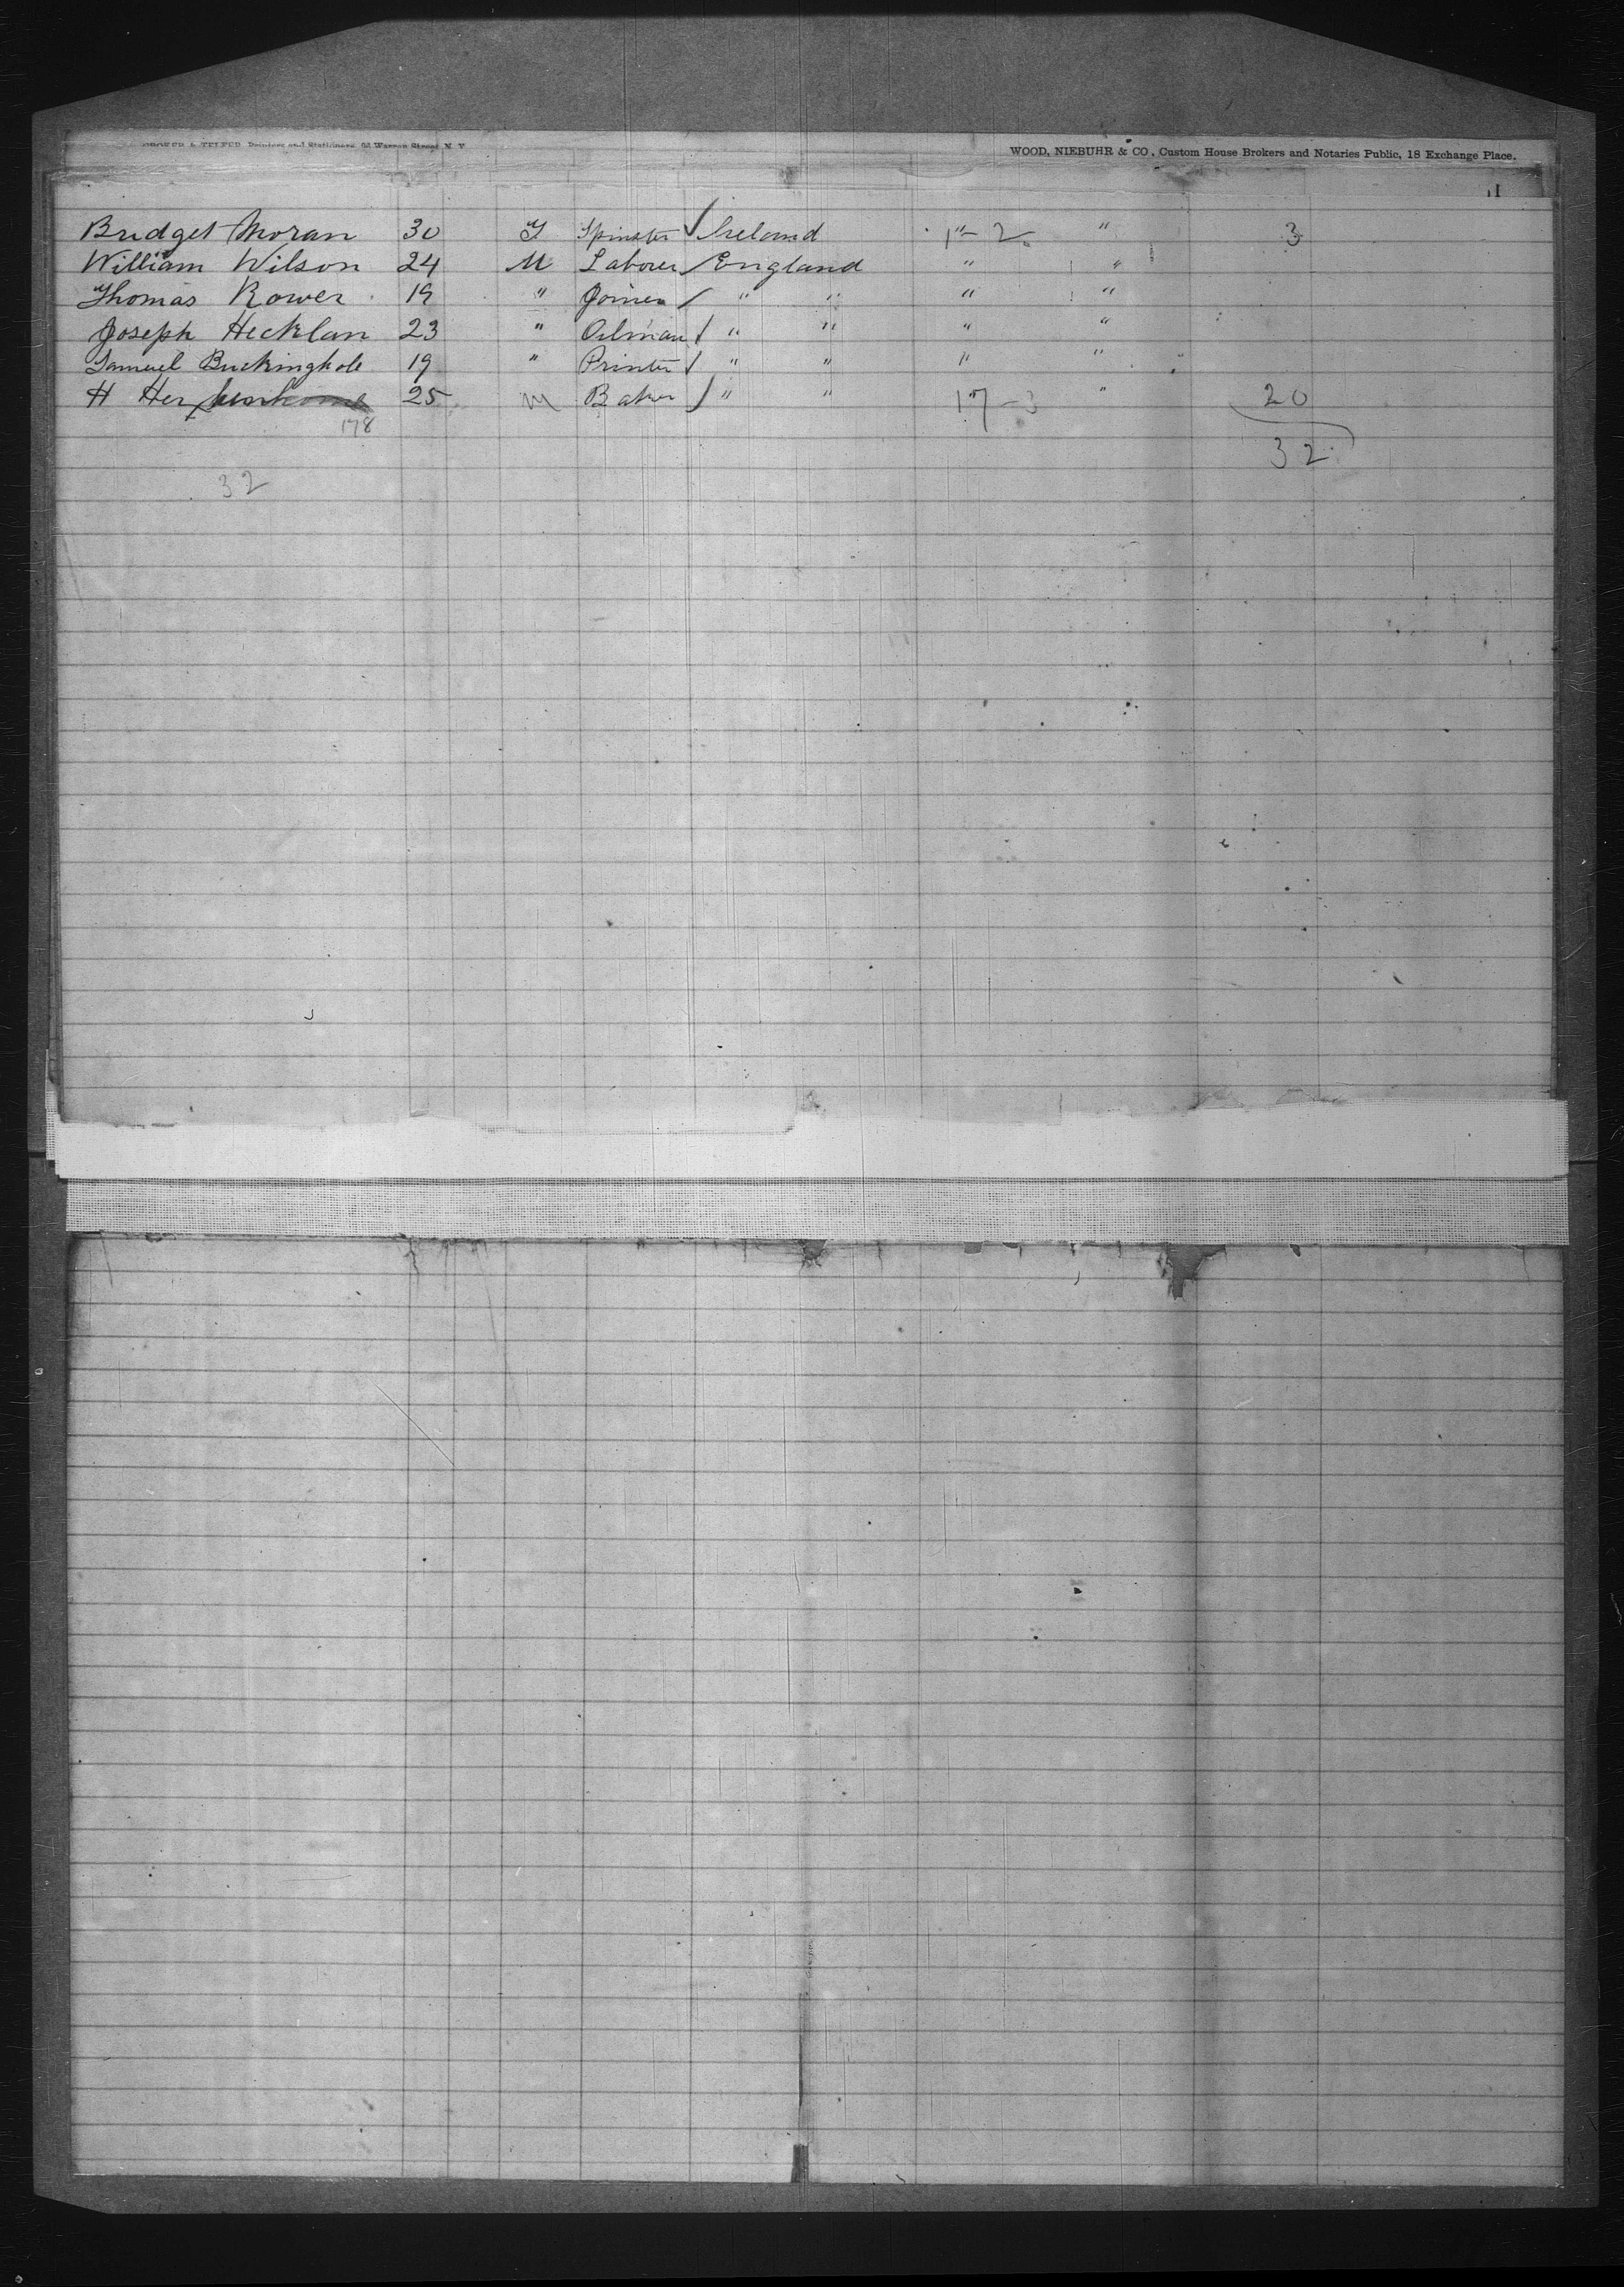 CROKER & TELFER, Printers and Stationers, Warren Street, N. Y.
WOOD, NIEBUHR & CO., Custom House Brokers and Notaries Public, 18 Exchange Place.
11
Bridget Moran 30 F Spinster / Ireland 1 - 2 " 3
William Wilson 24 M Laborer / England " "
Thomas Rower 19 " Joiner / " " " "
Joseph Hecklan 23 " Oilman / " " " "
Samuel Buckinghole 19 " Printer / " " " "
H 25 M Baker / " " 17 - 3 " 20
178
32
32